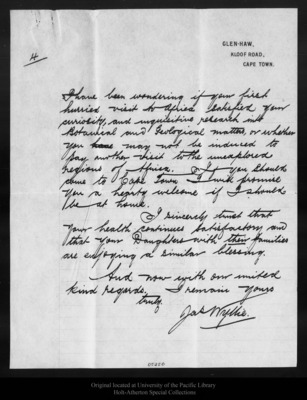 GLEN-HAW,
KLOOF ROAD,
CAPE TOWN.
4
I have been wondering if your first
hurried visit to Africa satisfied your
curiosity, and inquisitive research into
Botanical and Geological matters, or whether
you may not be induced to
pay another visit to the unexplored
regions of Africa. If you should
come to Cape Town I must promise
you a hearty welcome if I should
be at home.
I sincerely trust that
your health continues satisfactory and
that your Daughters with their families
are enjoying a similar blessing.
And now with our united
kind regards, I remain yours
truly
Jas Wyllie.
Original located at University of the Pacific Library
Holt-Atherton Special Collections